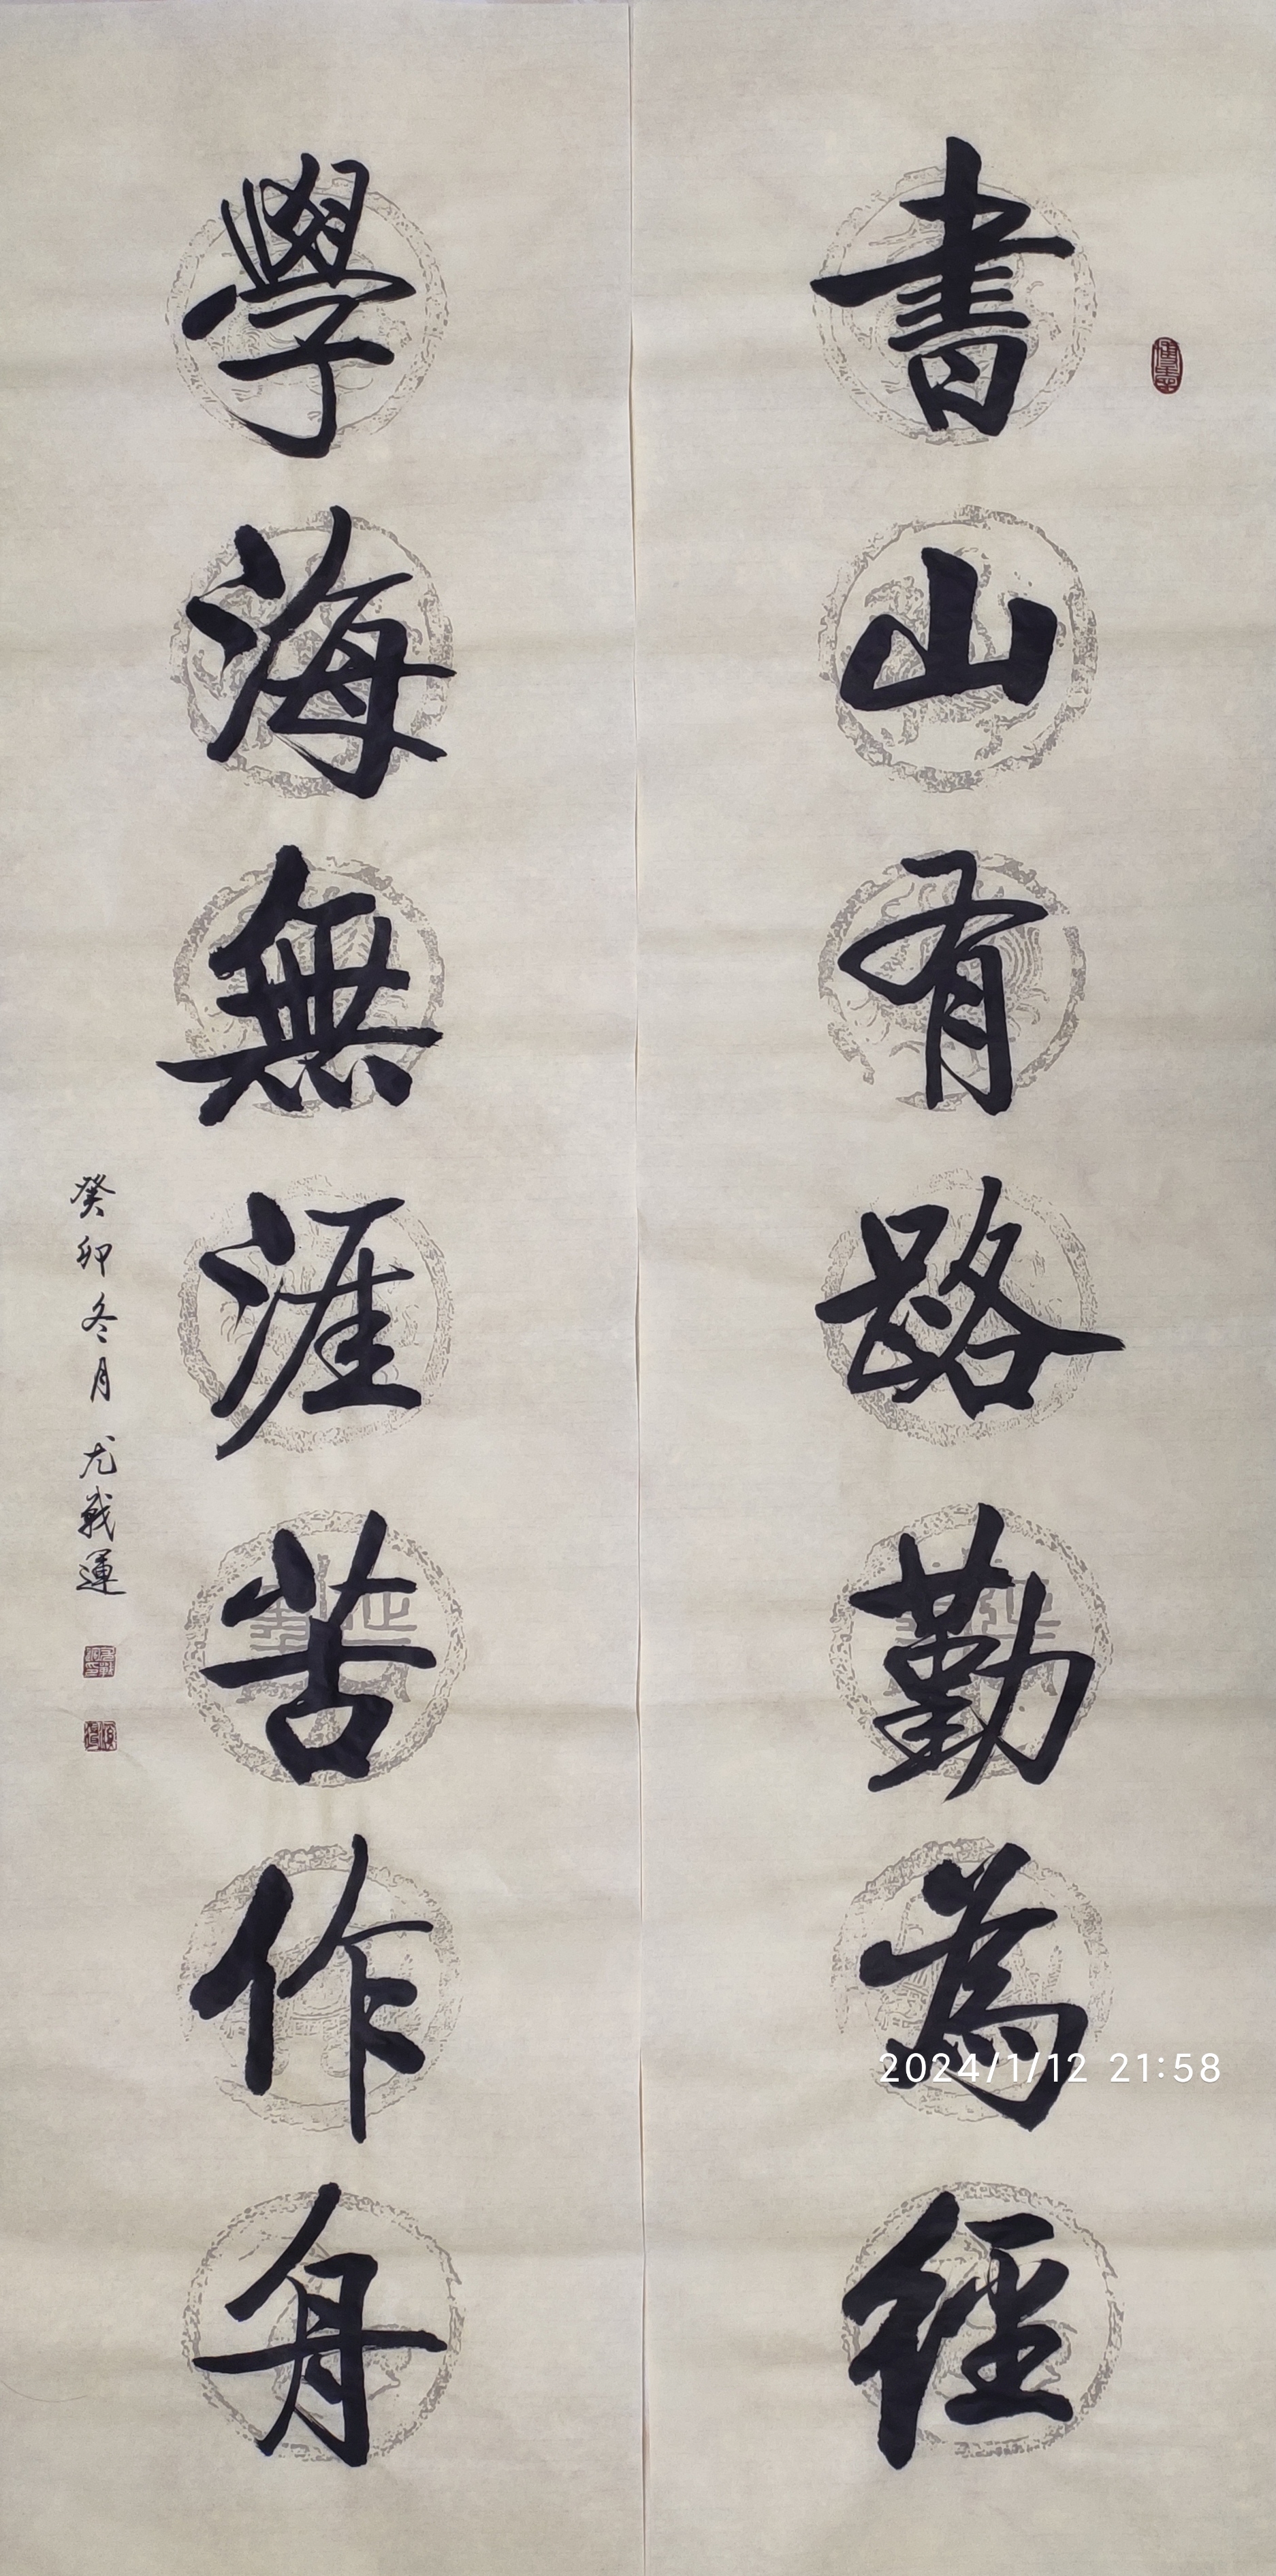 書山有路勤為經
學海無涯苦作舟
癸卯冬月 尤戰運
2024/1/12 21:58